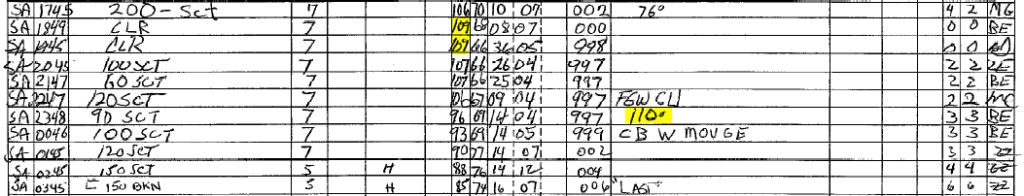 SA 1745 200-SCT 7 106 70 10 07 002 76° 4 2 MG
SA 1849 CLR 7 109 68 08 07 000 0 0 BE
SA 1945 CLR 7 107 66 36 05 998 0 0
SA 2045 100SCT 7 107 66 26 04 997 2 2
SA 2147 60SCT 7 107 66 25 04 997 2 2 BE
SA 2247 120SCT 7 67 09 04 997 FEW CU 2 2 MG
SA 2348 90 SCT 7 96 69 14 04 997 110° 3 3 BE
SA 0046 100SCT 7 93 69 14 05 999 CB W MOVGE 3 3 BE
SA 0145 120SCT 7 90 77 14 07 002 3 3
SA 0245 150SCT 5 H 88 76 14 12 004 4 4
SA 0345 E 150 BKN 5 H 85 74 16 07 006 "LAST" 6 6